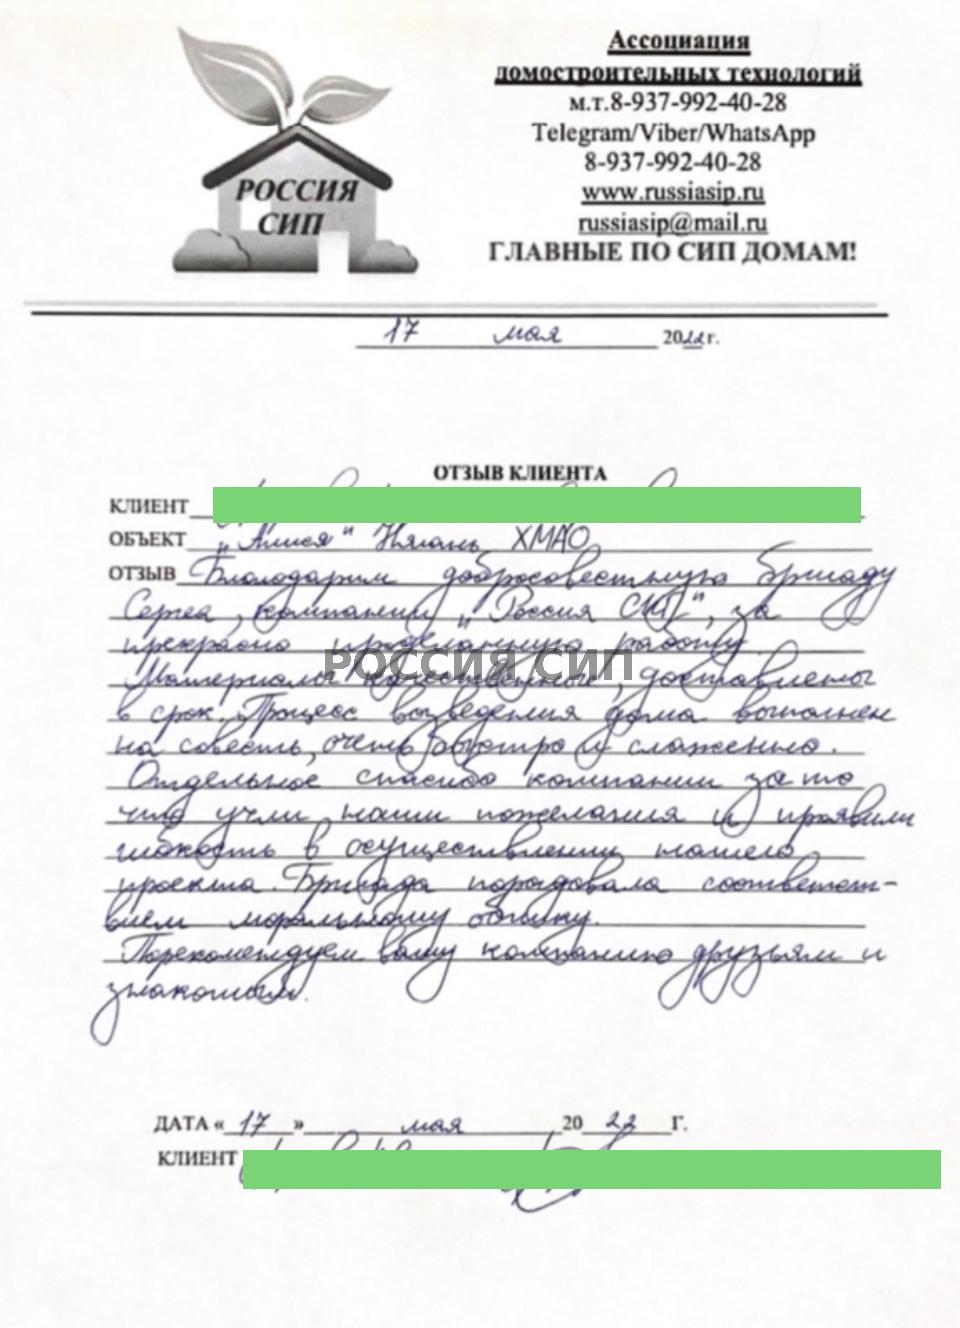 Ассоциация
домостроительных технологий
м.т.8-937-992-40-28
Telegram/Viber/WhatsApp
8-937-992-40-28
www.russiasip.ru
russiasip@mail.ru
ГЛАВНЫЕ ПО СИП ДОМАМ!
РОССИЯ
СИП
17 мая 2022 г.
ОТЗЫВ КЛИЕНТА
КЛИЕНТ
ОБЪЕКТ „Алиса" Нягань ХМАО
ОТЗЫВ Благодарим добросовестную бригаду
Сергея, компании „Россия СИП", за
прекрасно проделанную работу.
РОССИЯ СИП
Материалы качественные, доставлены
в срок. Процесс возведения дома выполнен
на совесть, очень быстро и слаженно.
Отдельное спасибо компании за то
что учли наши пожелания и проявили
гибкость в осуществлении нашего
проекта. Бригада порадовала соответст-
вием моральному облику.
Порекомендуем вашу компанию друзьям и
знакомым.
ДАТА « 17 » мая 20 22 Г.
КЛИЕНТ